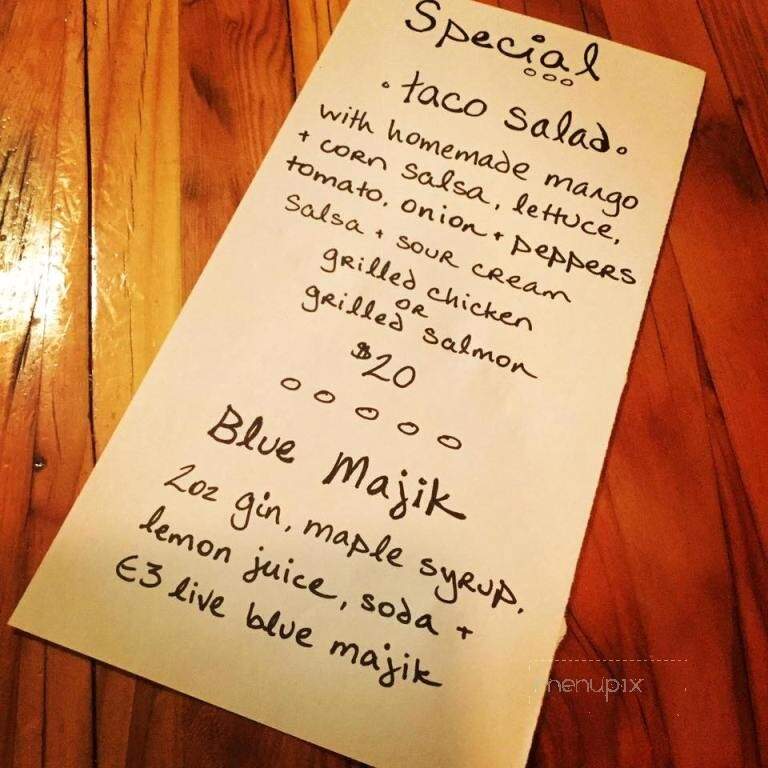 Special
taco salad
with homemade mango
+ corn salsa, lettuce,
tomato, onion + peppers
salsa + sour cream
grilled chicken
or
grilled salmon
$20
Blue Majik
2oz gin, maple syrup,
lemon juice, soda +
E3 live blue majik
menupix